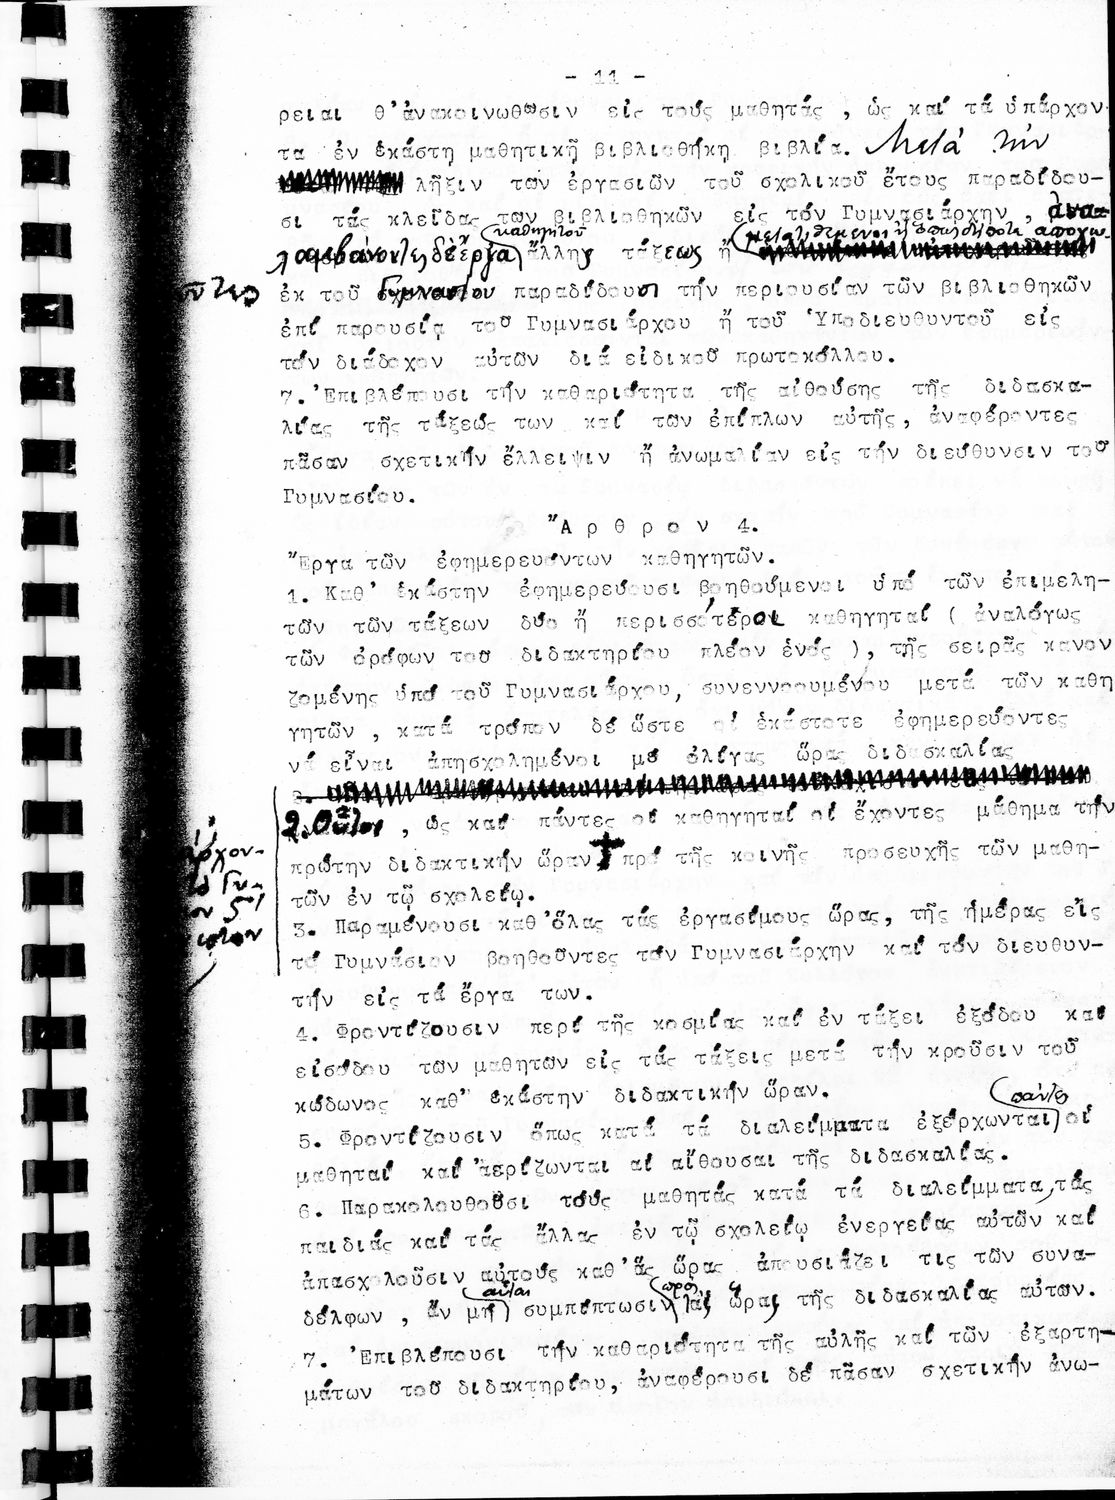 - 11 -
ρειαι θ'ἀνακοινωθῶσιν εἰς τούς μαθητάς , ὡς καί τά ὑπάρχον
τα ἐν ἑκάστη μαθητικῆ βιβλιοθήκη βιβλία. Μετά τήν
λῆξιν τῶν ἐργασιῶν τοῦ σχολικοῦ ἔτους παραδίδου-
σι τάς κλεῖδας τῶν βιβλιοθηκῶν εἰς τόν Γυμνασιάρχην , ἀνα-
καθηγητοῦ μετατιθέμενοι ἤ ὁπωσδήποτε ἀποχω-
λαμβάνοντες δέ ἔργα ἄλλης τάξεως ἤ
ἐκ τοῦ Γυμνασίου παραδίδουσι τήν περιουσίαν τῶν βιβλιοθηκῶν
ἐπί παρουσίᾳ τοῦ Γυμνασιάρχου ἤ τοῦ Ὑποδιευθυντοῦ εἰς
τόν διάδοχον αὐτῶν διά εἰδικοῦ πρωτοκόλλου.
7. Ἐπιβλέπουσι τήν καθαριότητα τῆς αἰθούσης τῆς διδασκα-
λίας τῆς τάξεώς των καί τῶν ἐπίπλων αὐτῆς, ἀναφέροντες
πᾶσαν σχετικήν ἔλλειψιν ἤ ἀνωμαλίαν εἰς τήν διεύθυνσιν τοῦ
Γυμνασίου.
Ἄ ρ θ ρ ο ν 4.
Ἔργα τῶν ἐφημερευόντων καθηγητῶν.
1. Καθ' ἑκάστην ἐφημερεύουσι βοηθούμενοι ὑπό τῶν ἐπιμελη-
τῶν τῶν τάξεων δύο ἤ περισσότεροι καθηγηταί ( ἀναλόγως
τῶν ὀρόφων τοῦ διδακτηρίου πλέον ἑνός ), τῆς σειρᾶς κανον
ζομένης ὑπό τοῦ Γυμνασιάρχου, συνεννοουμένου μετά τῶν καθη
γητῶν , κατά τρόπον δέ ὥστε οἱ ἑκάστοτε ἐφημερεύοντες
νά εἶναι ἀπησχολημένοι μέ ὀλίγας ὥρας διδασκαλίας
2. Οὗτοι , ὡς καί πάντες οἱ καθηγηταί οἱ ἔχοντες μάθημα τήν
πρώτην διδακτικήν ὥραν πρό τῆς κοινῆς προσευχῆς τῶν μαθη-
τῶν ἐν τῷ σχολείῳ.
3. Παραμένουσι καθ'ὅλας τάς ἐργασίμους ὥρας, τῆς ἡμέρας εἰς
τό Γυμνάσιον βοηθοῦντες τόν Γυμνασιάρχην καί τόν διευθυν-
τήν εἰς τά ἔργα των.
4. Φροντίζουσιν περί τῆς κοσμίας καί ἐν τάξει ἐξόδου καί
εἰσόδου τῶν μαθητῶν εἰς τάς τάξεις μετά τήν κροῦσιν τοῦ
κώδωνος καθ' ἑκάστην διδακτικήν ὥραν.
πάντες
5. Φροντίζουσιν ὅπως κατά τά διαλείμματα ἐξέρχωνται οἱ
μαθηταί καί ἀερίζωνται αἱ αἴθουσαι τῆς διδασκαλίας.
6. Παρακολουθοῦσι τούς μαθητάς κατά τά διαλείμματα, τάς
παιδιάς καί τάς ἄλλας ἐν τῷ σχολείῳ ἐνεργείας αὐτῶν καί
ἀπασχολοῦσιν αὐτούς καθ'ἅς ὥρας ἀπουσιάζει τις τῶν συνα-
αὗται πρός
δέλφων , ἄν μή συμπίπτωσιν τάς ὥρας τῆς διδασκαλίας αὐτῶν.
7. Ἐπιβλέπουσι τήν καθαριότητα τῆς αὐλῆς καί τῶν ἐξαρτη-
μάτων τοῦ διδακτηρίου, ἀναφέρουσι δέ πᾶσαν σχετικήν ἀνω-